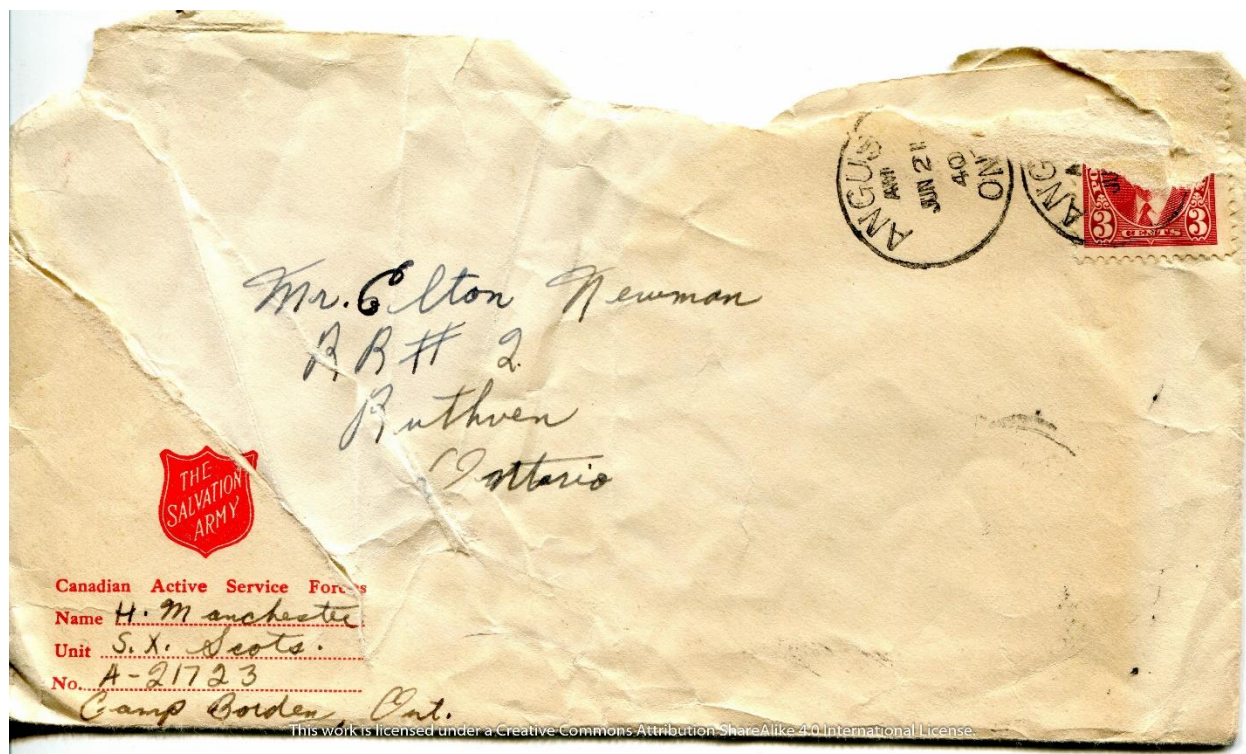 ANGUS
AM
JUN 21
40
ONT
ANG
3 CENTS 3
Mr. Elton Newman
RR# 2
Ruthven
Ontario
THE
SALVATION
ARMY
Canadian Active Service Forces
Name H. Manchester
Unit S.X. Scots.
No. A-21723
Camp Borden, Ont.
This work is licensed under a Creative Commons Attribution ShareAlike 4.0 International License.